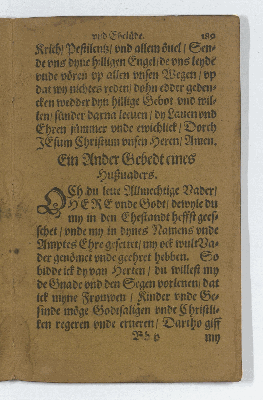 vnd Ehelüde. 189
Krich/ Pestilentz/ vnd allem övel/ Sen-
de vns dyne hilligen Engel/ de vns leyde
vnde vören vp allen vnsen Wegen/ vp
dat wy nichtes reden/ dohn edder geden-
cken wedder dyn hillige Gebot vnd wil-
len/ sünder darna leuen/ dy Lauen vnd
Ehren jümmer vnde ewichlick/ Dorch
JEsum Christum vnsen Heren/ Amen.
Ein Ander Gebedt eines
Hußuaders.
OCh du leue Allmechtige Vader/
HERE vnde Godt/ dewyle du
my in den Ehestandt heffst gees-
schet/ vnde my in dynes Namens vnde
Amptes Ehre gesettet/ my ock wult Va-
der genömet vnde geehret hebben. So
bidde ick dy van Herten/ du willest my
de Gnade vnd den Segen vorlenen/ dat
ick myne Frouwen/ Kinder vnde Ge-
sinde möge Godtsaligen vnde Christli-
ken regeren vnde erneren/ Dartho giff
my